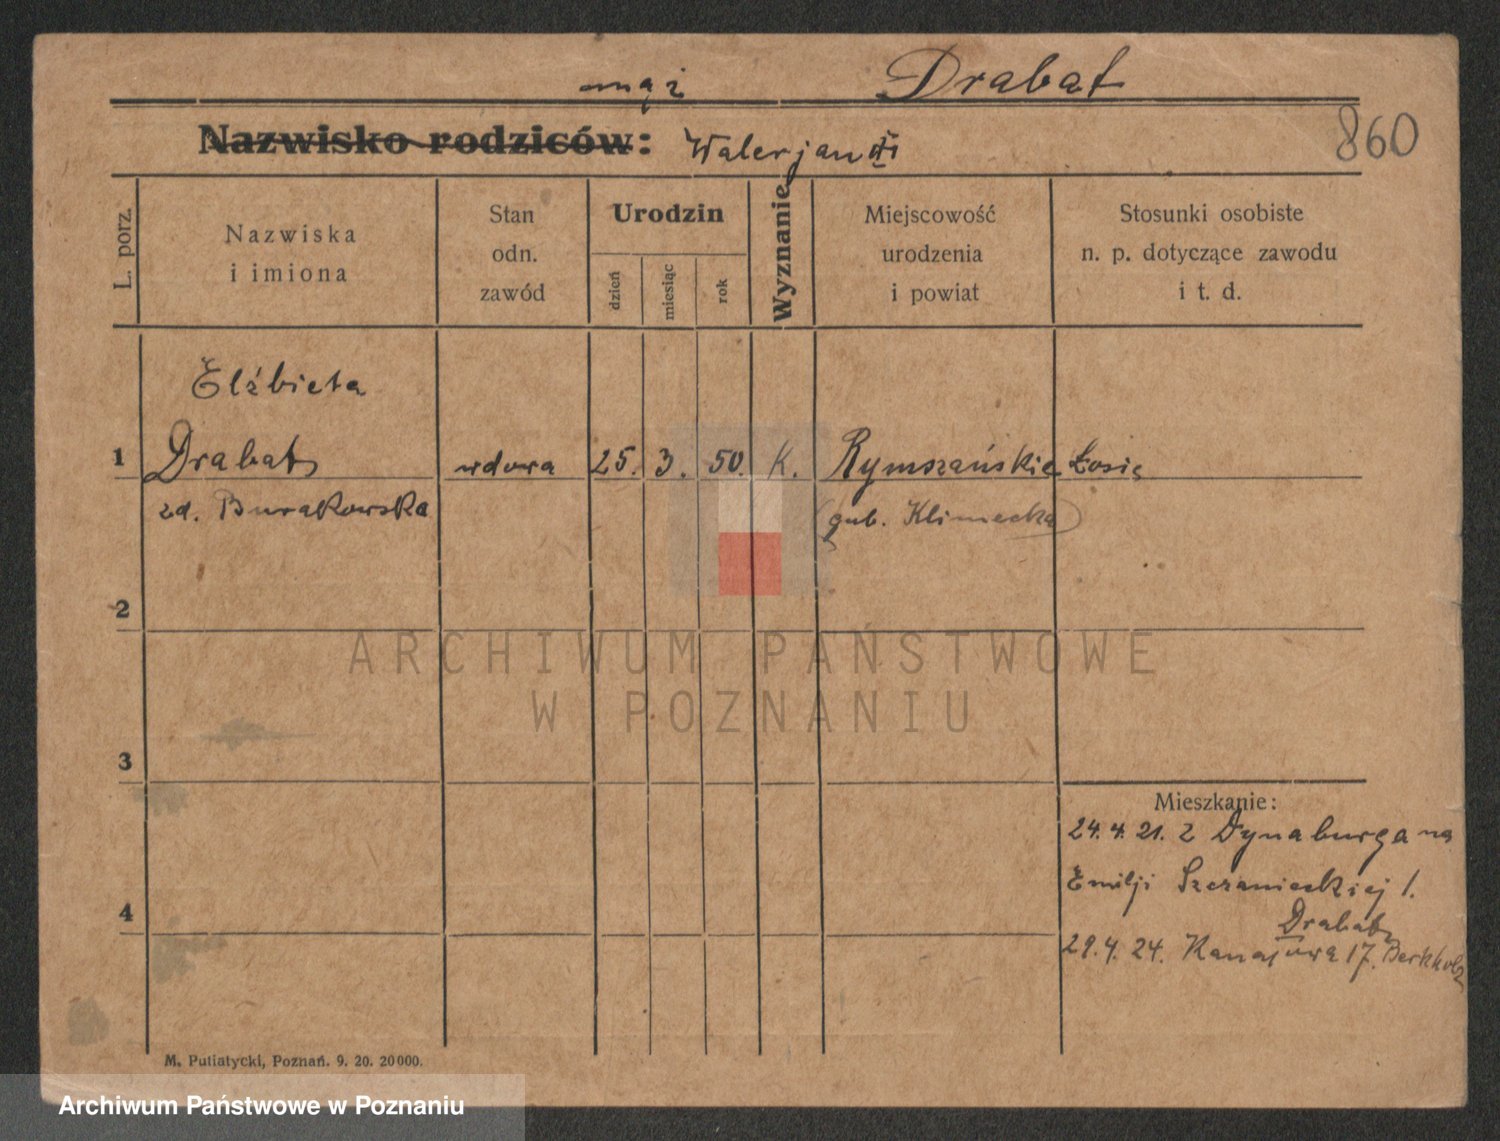 mąż Drabat
860
Nazwisko rodziców: Walerjan
L. porz.
Nazwiska
i imiona
Stan
odn.
zawód
Urodzin
dzień
miesiąc
rok
Wyznanie
Miejscowość
urodzenia
i powiat
Stosunki osobiste
n. p. dotyczące zawodu
i t. d.
Elżbieta
1 Drabat wdowa 25. 3. 50. K. Rymszańskie Łosie
zd. Burakowska (gub. )
2
ARCHIWUM PAŃSTWOWE
W POZNANIU
3
Mieszkanie:
24. 4. 21. z Dynaburga na
Emilji Szczanieckiej 1.
4
Drabat
29. 4. 24. 17.
M. Putiatycki, Poznań. 9. 20. 20000.
Archiwum Państwowe w Poznaniu